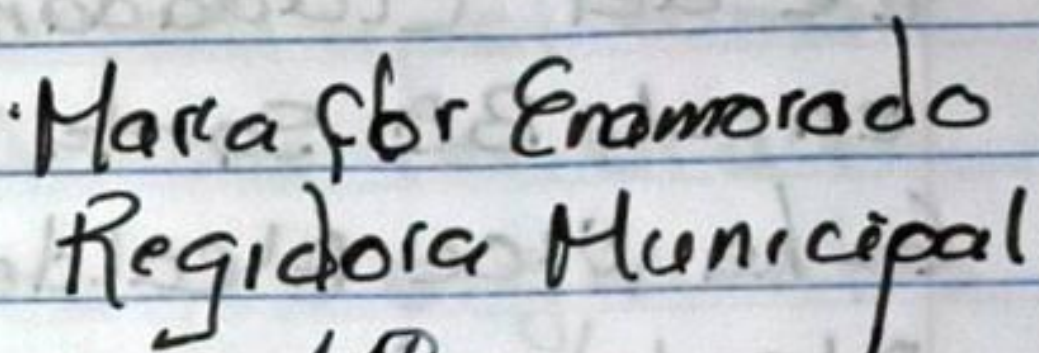 Maria Flor Enamorado
Regidora Municipal